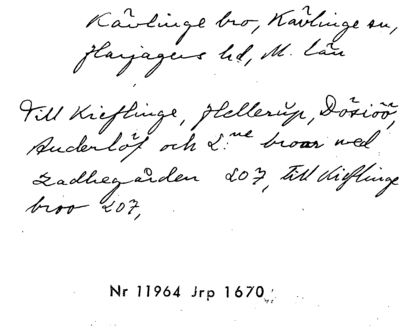 Kävlinge bro, Kävlinge sn,
Harjagers hd, M. län
Till Kieflinge, Hellerŭp, Dösiöö,
Anderlöf och 2:ne broar med
Ladhegården 207, till Kieflinge
broo 207,
Nr 11964 Jrp 1670